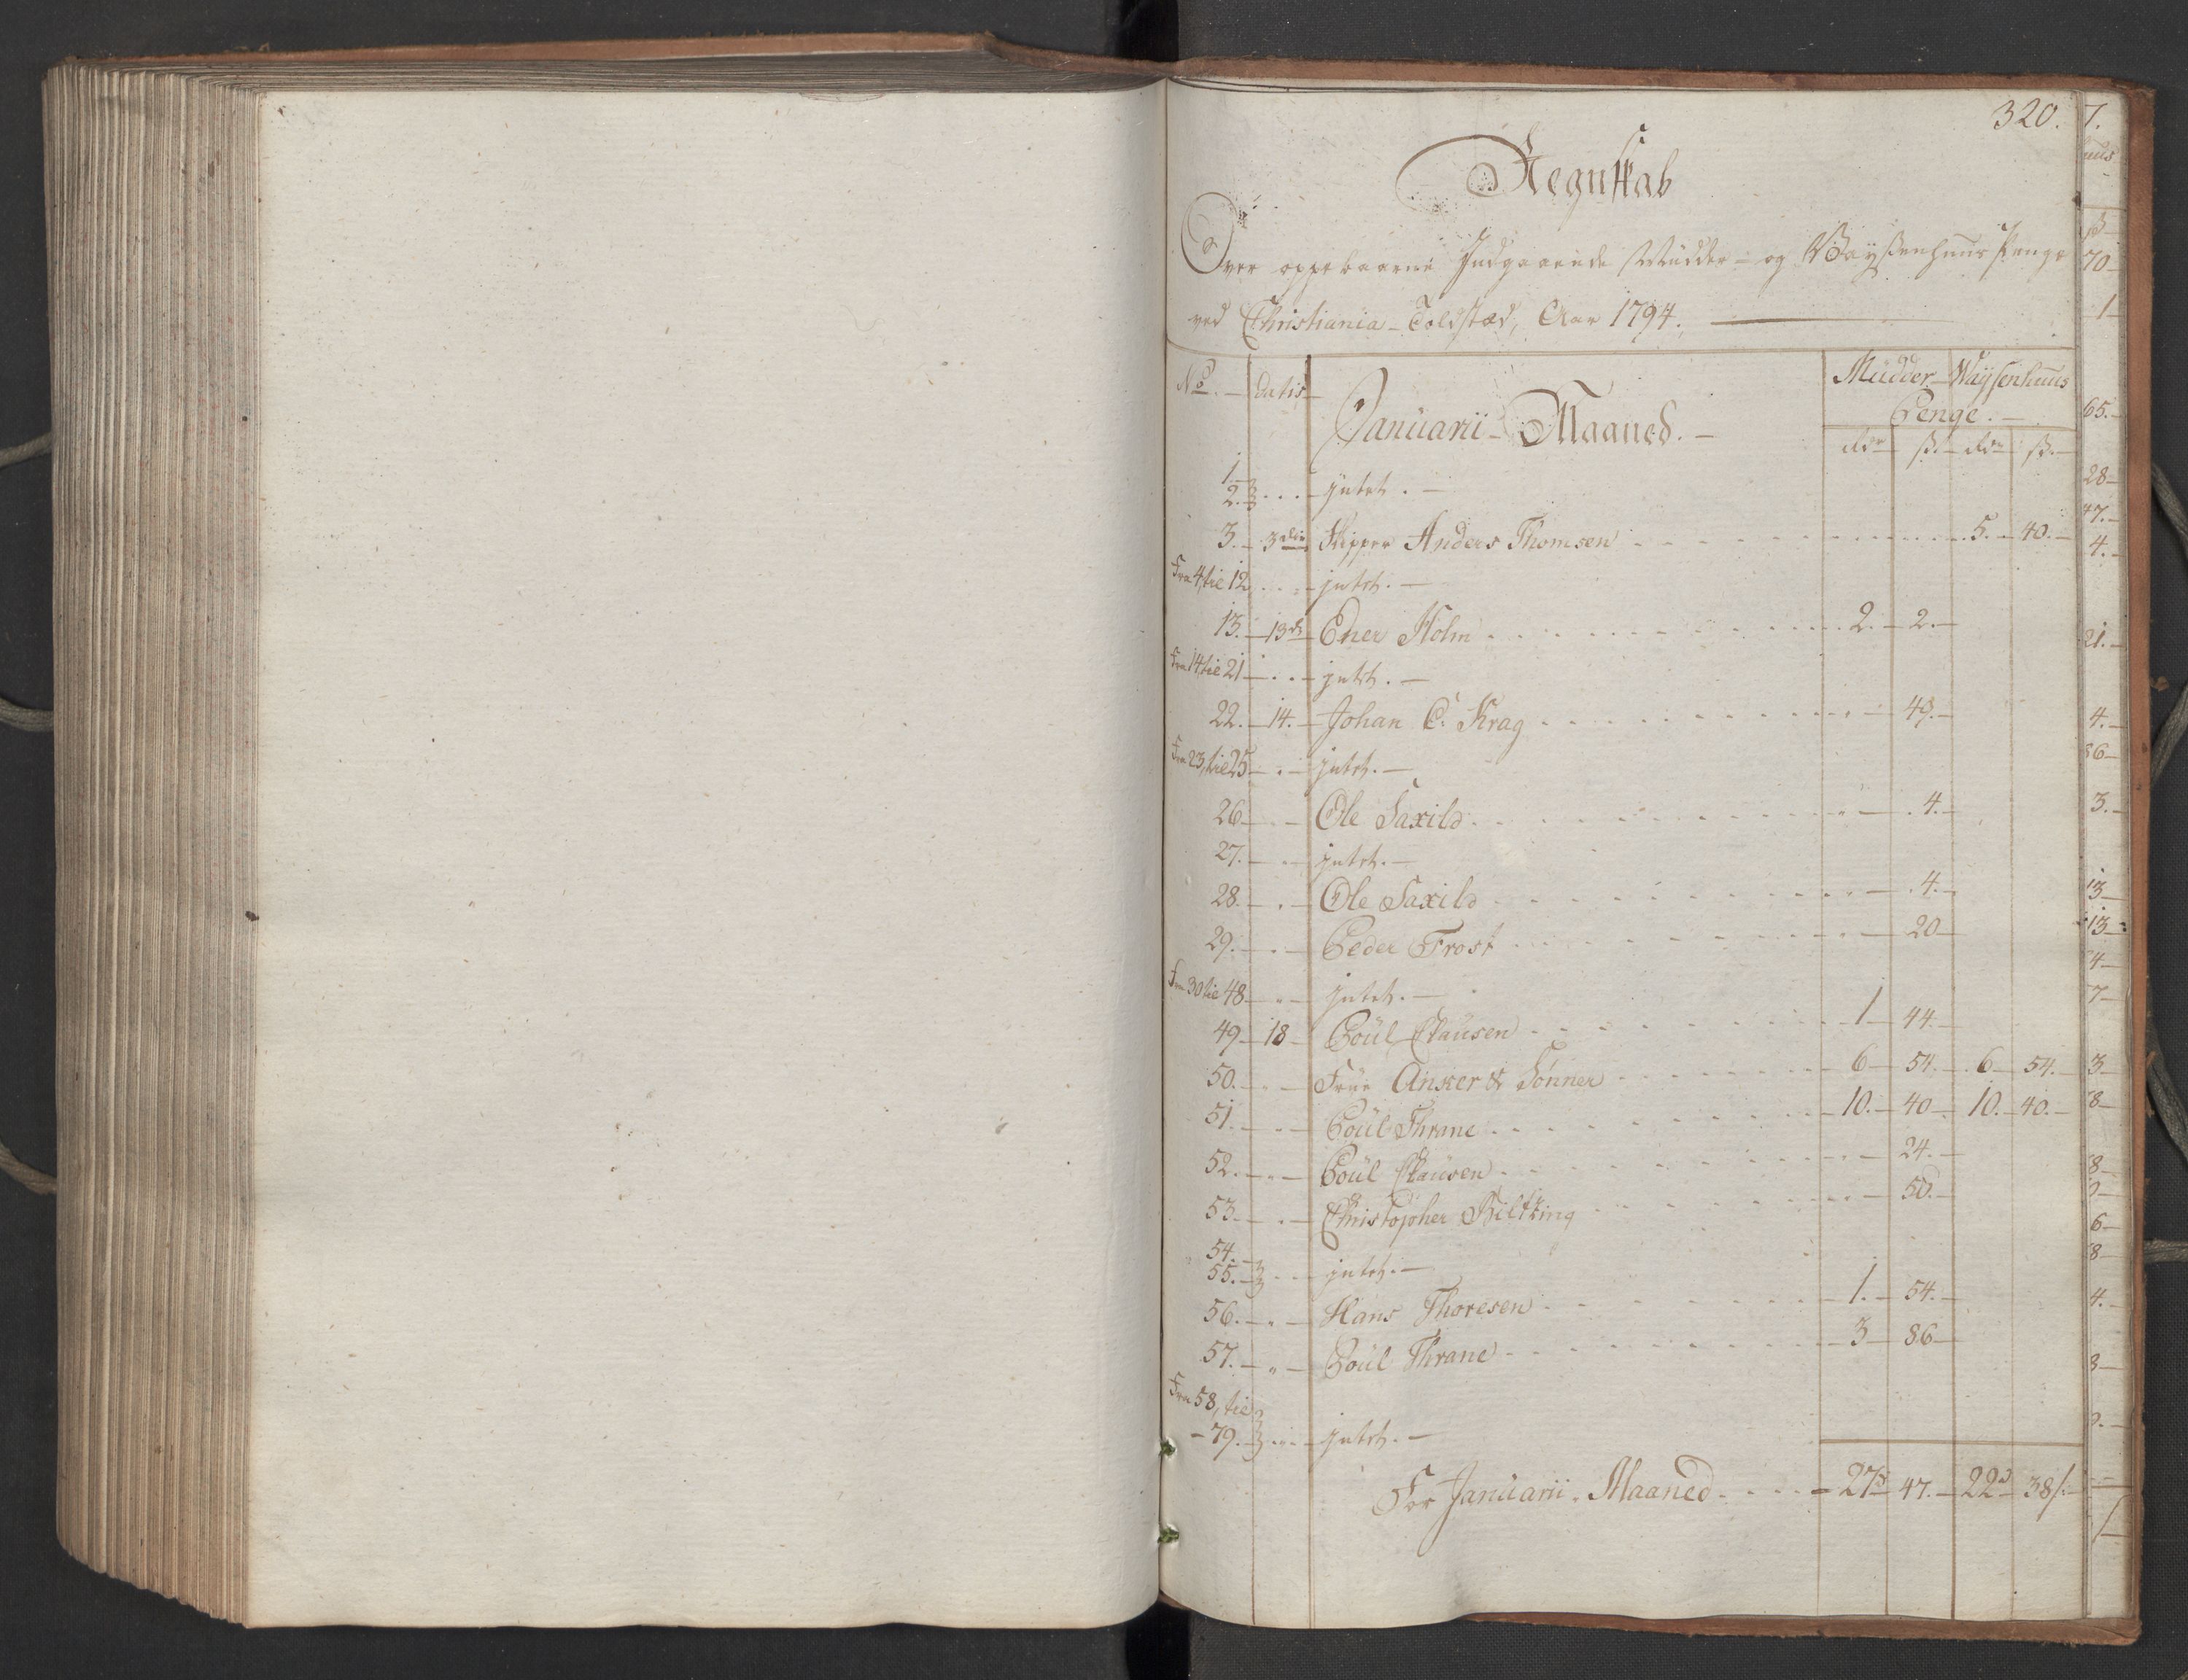 320.
Regnskab
Over oppebaarne Indgaaende Mudder- og Waysenhuus Penge
ved Christiania Toldsted, Aar 1794.
No. Datis Januarii Maaned. Müdder Waysenhuus
Penge.
rdr ß. rdr ß.
1.
2. intet.
3. 3die Skipper Anders Thomsen 5. 40.
Fra 4 til 12 intet.
13. 13de Ener Holm 2. 2.
Fra 14 til 21 intet.
22. 14. Johan C. Krag 49.
Fra 23, til 25 intet.
26 Ole Saxild 4.
27. intet.
28. Ole Saxild 4.
29. Peder Frost 20
Fra 30 til 48 intet.
49 18 Poül Clausen 1 44.
50. Frue Anker & Sönner 6 54. 6 54.
51. Poül Thrane 10. 40. 10. 40.
52. Poül Clausen 24.
53. Christopher 50.
54.
55. intet.
56. Hans Thoresen 1. 54.
57. Poül Thrane 3 86
Fra 58, til
79. intet.
For Januarii Maaned 27 47. 22 38
7.
ß
70
1
65.
28
47.
4.
21.
4.
86
3.
13
13
4
7
3
8
8
6
8
4.
8